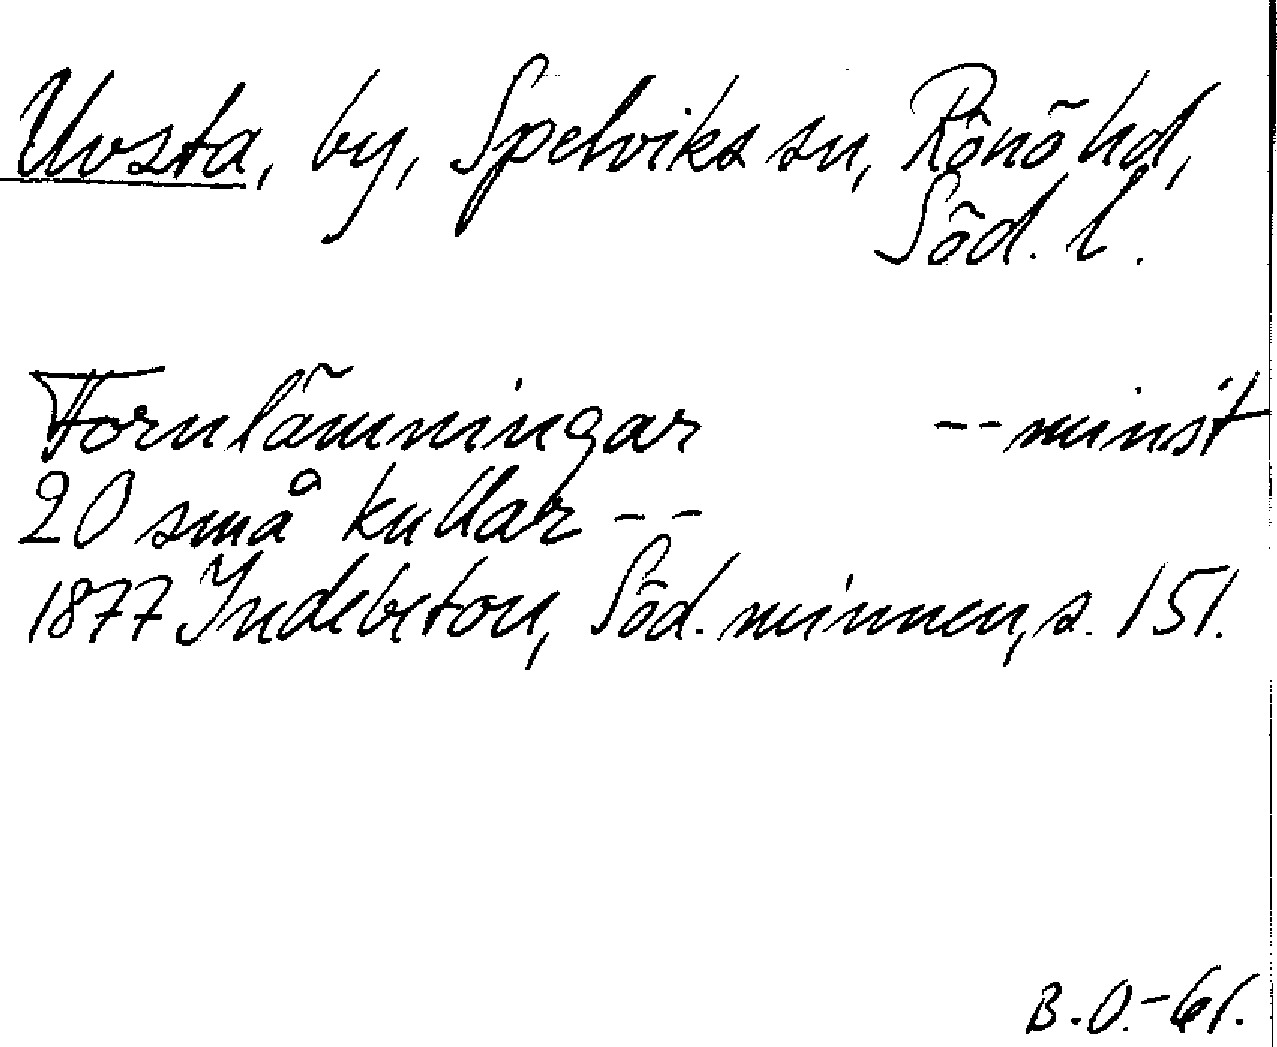 Uvsta, by, Spelviks sn, Rönö hd,
Söd. l.
Fornlämningar -- minst
20 små kullar --
1877 Indebetou, Söd. minnen, s. 151.
B.O.-61.